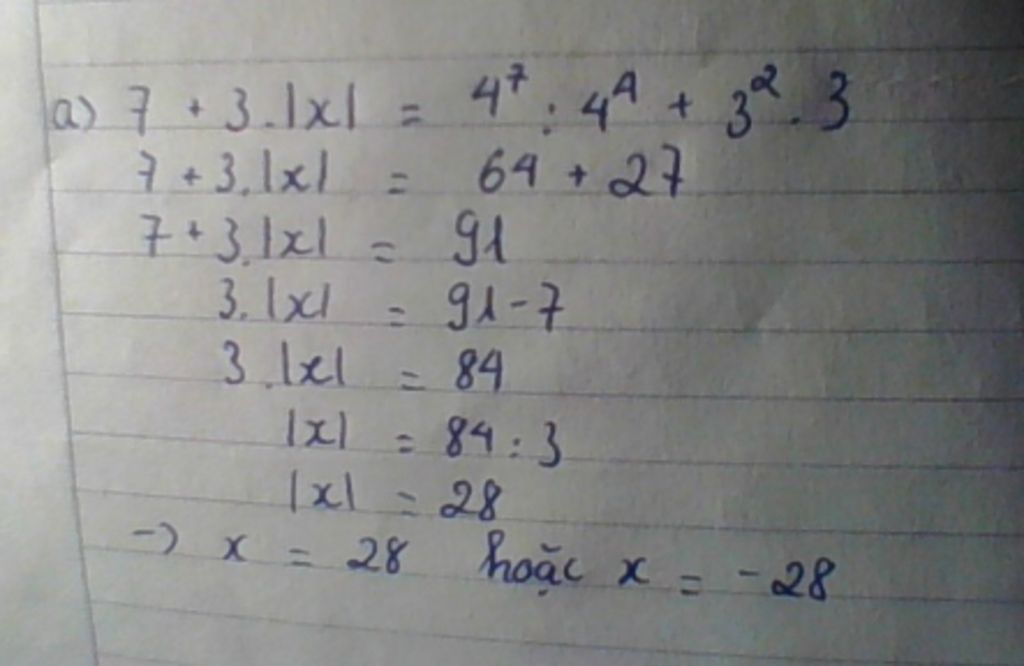 a) 7 + 3.|x| = 4⁷ : 4⁴ + 3² . 3
7 + 3.|x| = 64 + 27
7 + 3.|x| = 91
3.|x| = 91 - 7
3.|x| = 84
|x| = 84 : 3
|x| = 28
-> x = 28 hoặc x = -28